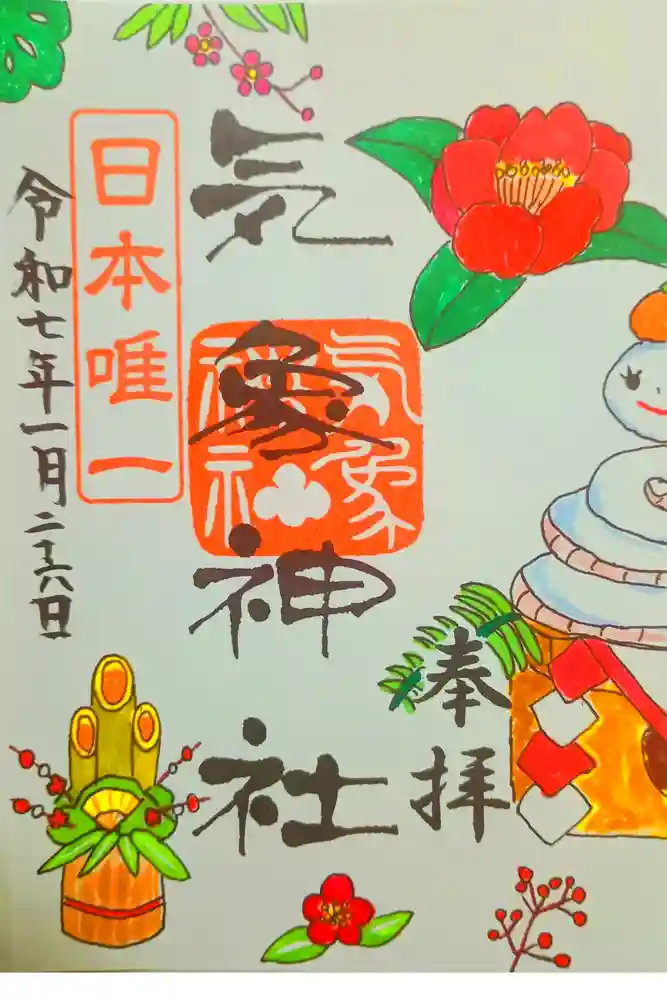 奉拝
気象神社
気象
神社
日本唯一
令和七年一月二十六日